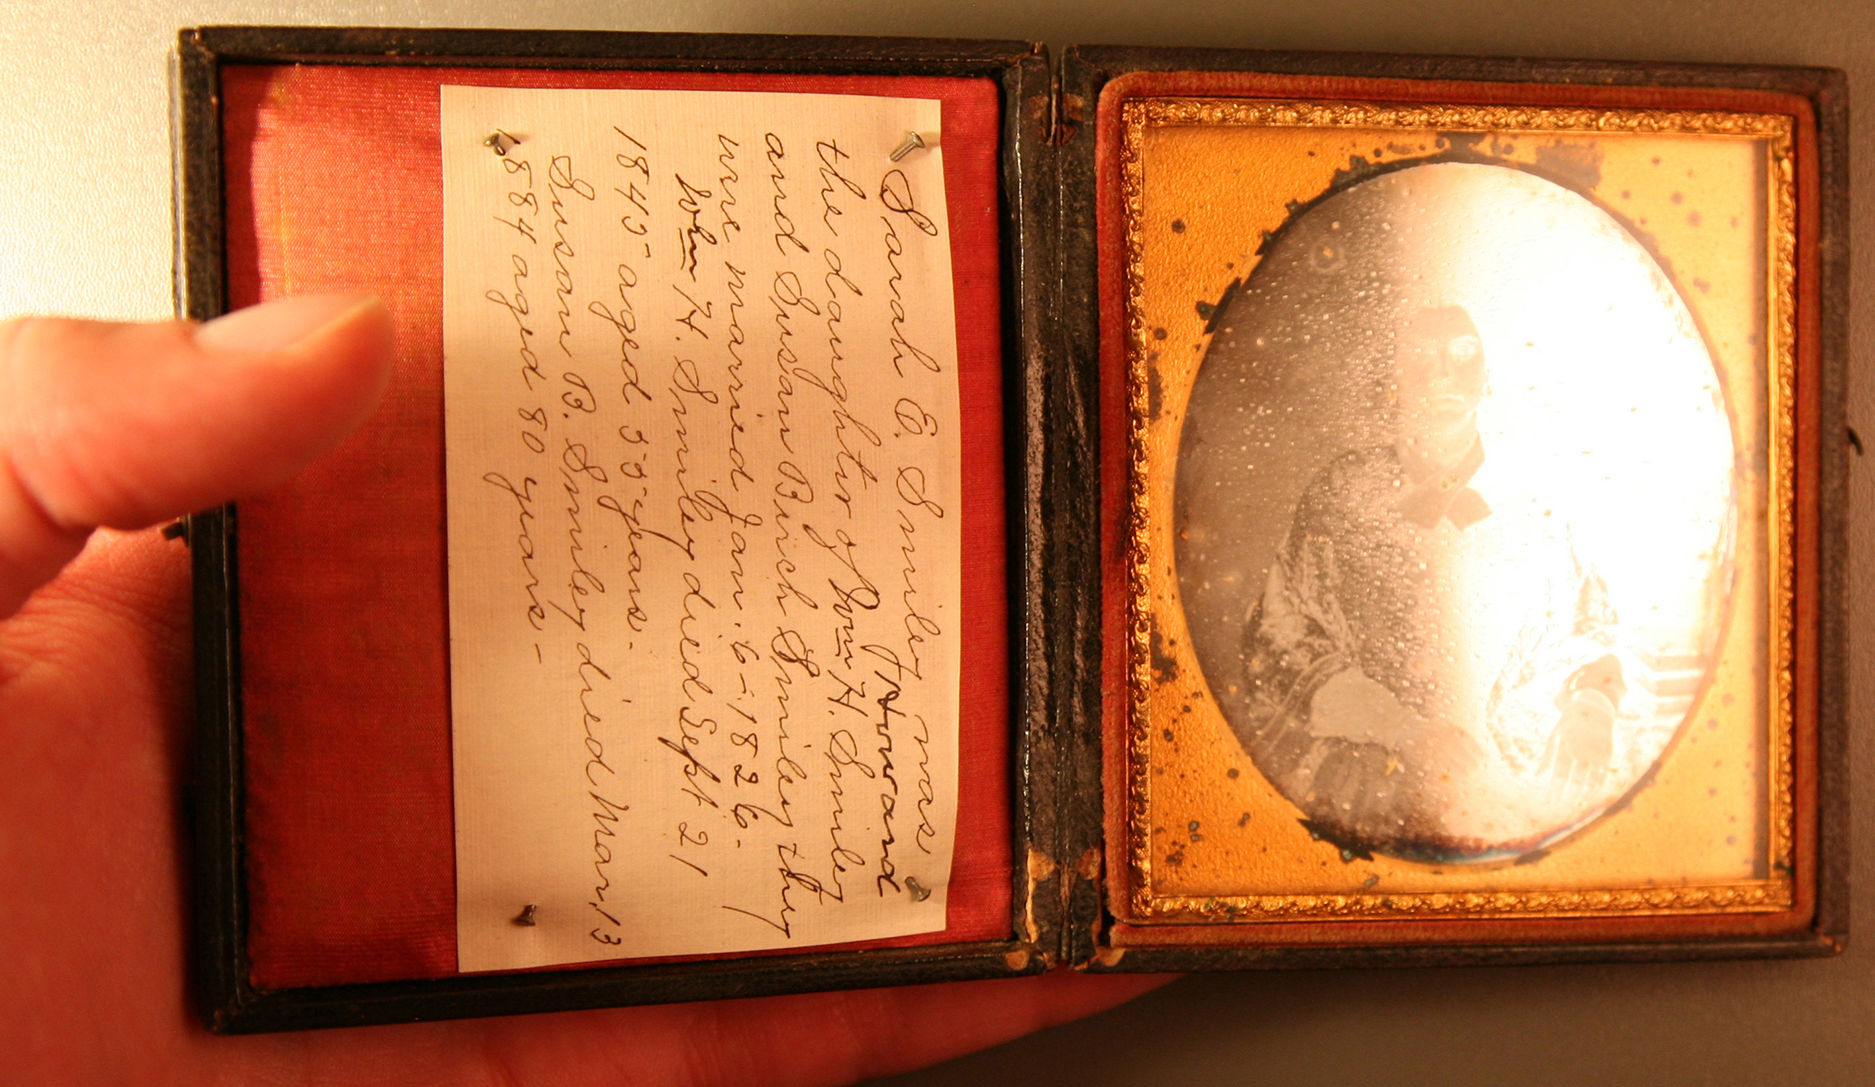 Sarah E. Smiley was
Howard
the daughter of Wm H. Smiley
and Susan Birch Smiley they
were married Jan. 6-1826-
Wm H. Smiley died Sept 21
1845 aged 55 years.-
Susan B. Smiley died Mar. 13
1884 aged 80 years-